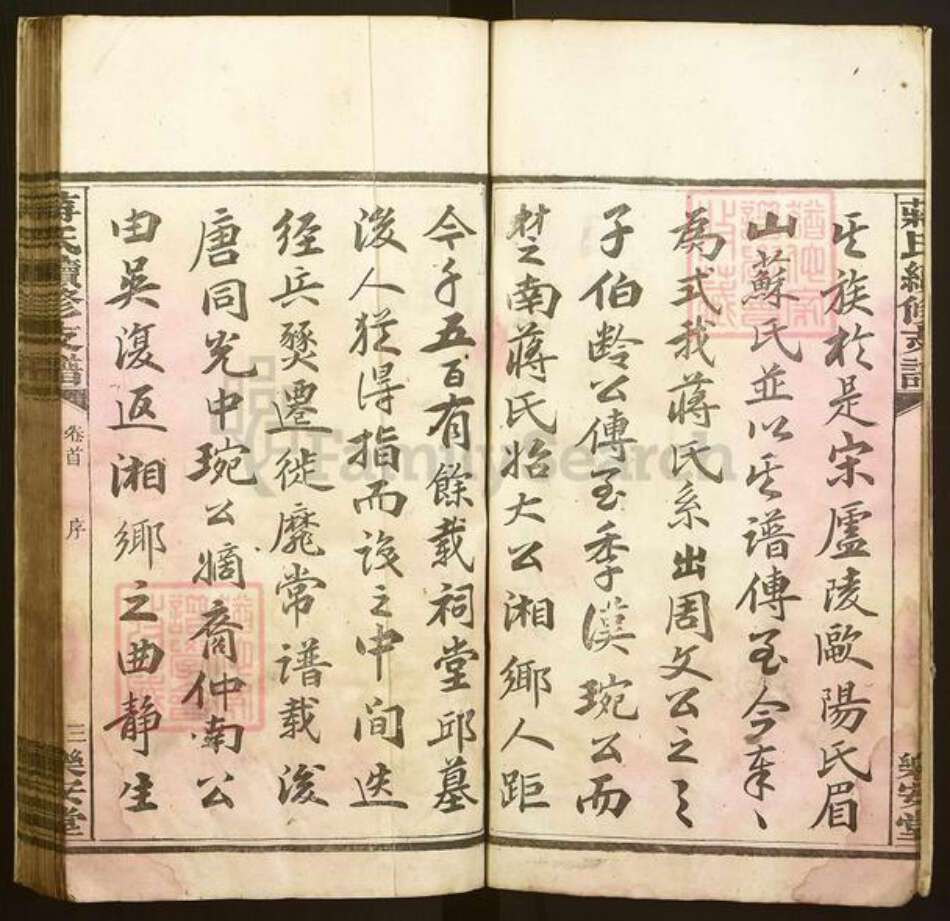 蔣氏續修支譜
樂安堂
其族於是宋盧陵歐陽氏眉
山蘇氏並以其譜傳至今奉〻
為式我蔣氏系出周文公之〻
子伯齡公傳至季漢琬公而
之南蔣氏始大公湘鄉人距
今千五百有餘載祠堂邱墓
後人猶得指而識之中間迭
經兵燹遷徙靡常譜載後
唐同光中琬公嫡裔仲南公
由吳復返湘鄉之曲靜生
蔣氏續修支譜
卷首
序
三
樂安堂
FamilySearch